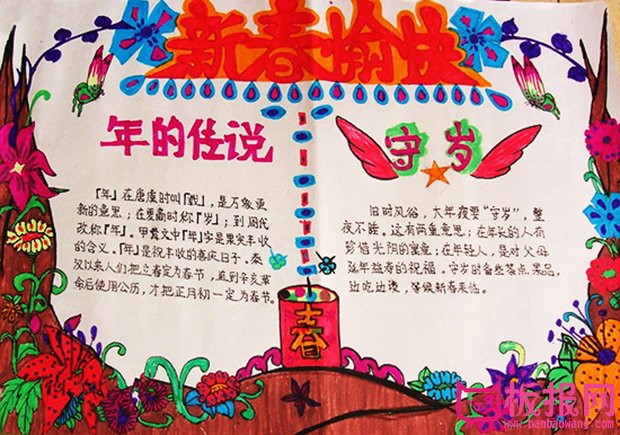 新春愉快
年的传说
『年』在唐虞时叫『载』，是万象更
新的意思；在夏商时称『岁』；到周代
改称『年』。甲骨文中『年』字是果实丰收
的含义。『年』是祝丰收的喜庆日子。秦
汉以来人们把立春定为春节，直到辛亥革
命后使用公历，才把正月初一定为春节。
守岁
旧时风俗，大年夜要“守岁”，整
夜不睡。这有两重意思：在年长的人有
珍惜光阴的寓意；在年轻人，是对父母
延年益寿的祝福。守岁时备些茶点果品，
边吃边谈，等候新春来临。
春
板报网
www.banbaowang.com